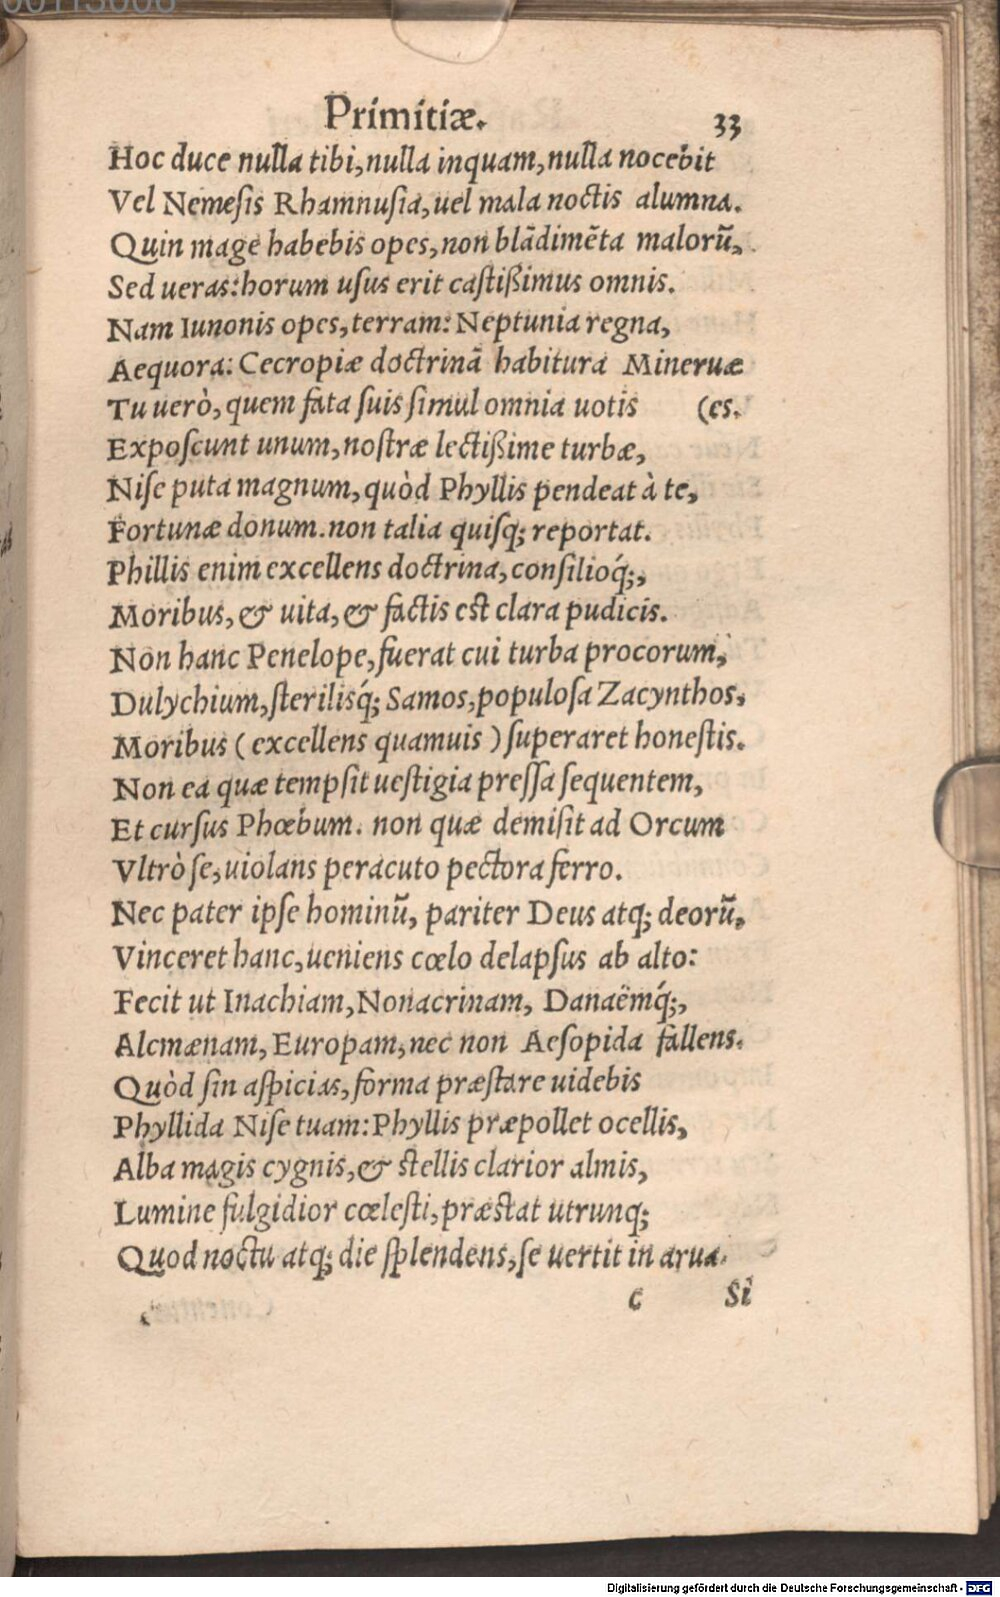 Primitiæ. 33
Hoc duce nulla tibi, nulla inquam, nulla nocebit
Vel Nemesis Rhamnusia, uel mala noctis alumna.
Quin mage habebis opes, non blãdimẽta malorũ,
Sed ueras: horum usus erit castißimus omnis.
Nam Iunonis opes, terram: Neptunia regna,
Aequora: Cecropiæ doctrinã habitura Mineruæ
Tu uerò, quem fata suis simul omnia uotis (es.
Exposcunt unum, nostræ lectißime turbæ,
Nise puta magnum, quòd Phyllis pendeat à te,
Fortunæ donum. non talia quisq; reportat.
Phillis enim excellens doctrina, consilioq́;,
Moribus, & uita, & factis est clara pudicis.
Non hanc Penelope, fuerat cui turba procorum,
Dulychium, sterilisq́; Samos, populosa Zacynthos,
Moribus ( excellens quamuis ) superaret honestis.
Non ea quæ tempsit uestigia pressa sequentem,
Et cursus Phœbum. non quæ demisit ad Orcum
Vltrò se, uiolans peracuto pectora ferro.
Nec pater ipse hominũ, pariter Deus atq; deorũ,
Vinceret hanc, ueniens cœlo delapsus ab alto:
Fecit ut Inachiam, Nonacrinam, Danaëmq́;,
Alcmænam, Europam, nec non Aesopida fallens.
Quòd sin aspicias, forma præstare uidebis
Phyllida Nise tuam: Phyllis præpollet ocellis,
Alba magis cygnis, & stellis clarior almis,
Lumine fulgidior cœlesti, præstat utrunq;
Quod noctu atq; die splendens, se uertit in arua.
c Si
Digitalisierung gefördert durch die Deutsche Forschungsgemeinschaft - DFG